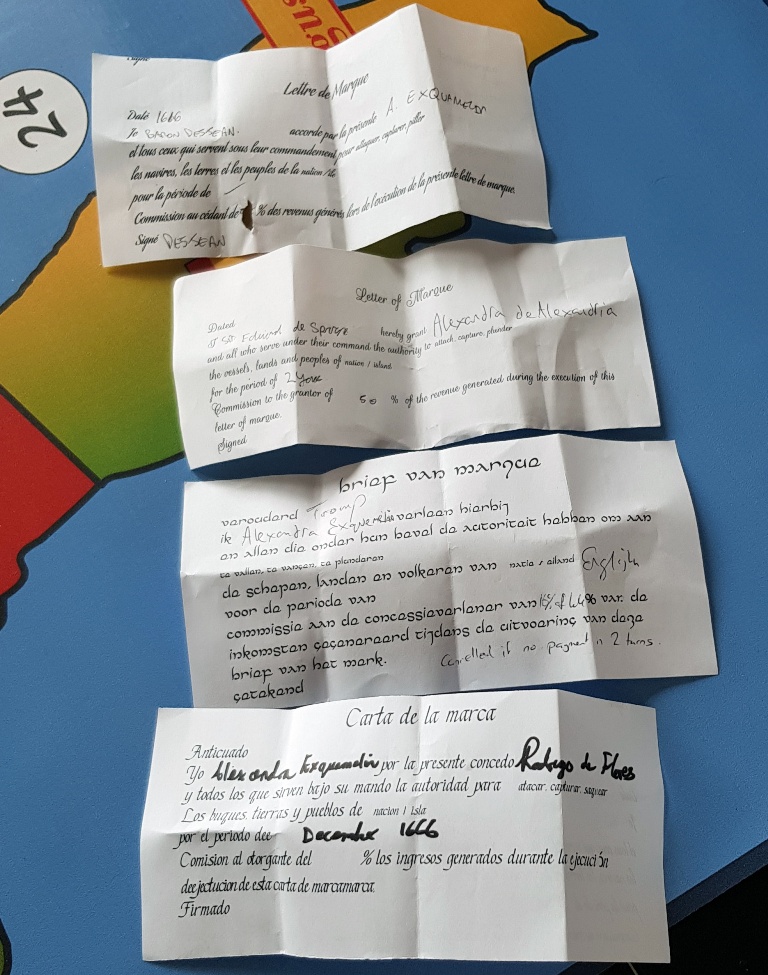 24
Lettre de Marque
Daté 1666
Je BARON DESSEAN. accorde par la présente A. EXQUAMELIN
et tous ceux qui servent sous leur commandement pour attaquer, capturer, piller
les navires, les terres et les peuples de la nation / île
pour la période de
Commission au cédant de % des revenus générés lors de l'exécution de la présente lettre de marque.
Signé DESSEAN
Letter of Marque
Dated
I Sir Edward de Sprage hereby grant Alexandra de Alexandria
and all who serve under their command the authority to attack, capture, plunder
the vessels, lands and peoples of nation / island
for the period of 2 Year
Commission to the grantor of 50 % of the revenue generated during the execution of this
letter of marque.
Signed
brief van marque
verouderd Tromp
ik Alexandra Exquemelin verleen hierbij
en allen die onder hun bevel de autoriteit hebben om aan
te vallen, te vangen, te plunderen
de schepen, landen en volkeren van natie / eiland English
voor de periode van
commissie aan de concessieverlener van % van de
inkomsten gegenereerd tijdens de uitvoering van deze
brief van het merk. Cancelled if no payment in 2 turns.
getekend
Carta de la marca
Anticuado
Yo Alexandra Exquemelin por la presente concedo Rodrigo de Flores
y todos los que sirven bajo su mando la autoridad para atacar, capturar, saquear
Los buques, tierras y pueblos de nacion / isla
por el periodo dee December 1666
Comision al otorgante del % los ingresos generados durante la ejecución
deejectucion de esta carta de marcamarca.
Firmado